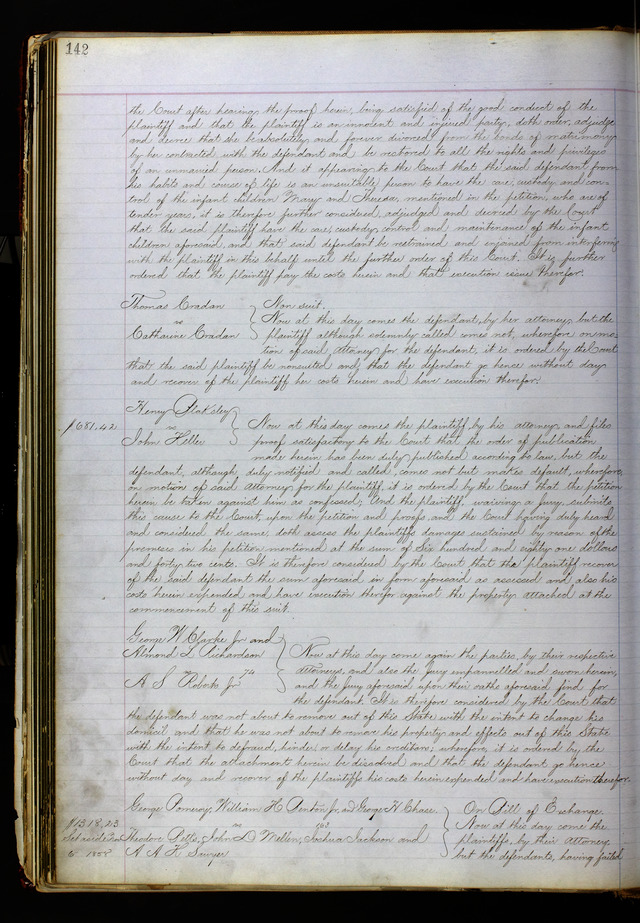 142
the Court after hearing the proof herein, being satisfied of the good conduct of the
plaintiff and that the plaintiff is an innocent and injured party, doth order, adjudge
and decree that she be absolutely and forever divorced from the bonds of matrimony
by her contracted with the defendant and be restored to all the rights and privileges
of an unmarried person. And it appearing to the Court that the said defendant from
his habits and course of life is an unsuitable person to have the care, custody and con-
trol of the infant children Mary and Theresa, mentioned in the petition, who are of
tender years, it is therefore further considered, adjudged and decreed by the Court
that the said plaintiff have the care, custody, control and maintenance of the infant
children aforesaid, and that said defendant be restrained and enjoined from interfering
with the plaintiff in this behalf until the further order of this Court. It is further
ordered that the plaintiff pay the costs herein and that execution issue therefor.
Thomas Cradan
vs
Catharine Cradan
Non suit.
Now at this day comes the defendant, by her attorney, but the
plaintiff although solemnly called comes not, wherefore on mo-
tion of said Attorney for the defendant, it is ordered by the Court
that the said plaintiff be nonsuited and, that the defendant go hence without day
and recover of the plaintiff her costs herein and have execution therefor.
$681.42
Henry Blaksley
vs
John Heller
Now at this day comes the plaintiff, by his attorney, and files
proof satisfactory to the Court that the order of publication
made herein has been duly published according to law, but the
defendant, although duly notified and called, comes not but makes default, wherefore,
on motion of said Attorney for the plaintiff, it is ordered by the Court that the petition
herein be taken against him as confessed; And the plaintiff waiving a jury, submits
this cause to the Court, upon the petition and proofs and the Court having duly heard
and considered the same, doth assess the plaintiffs damages sustained by reason of the
premises in his petition mentioned at the sum of Six hundred and eighty one dollars
and forty two cents. It is therefore considered by the Court that the plaintiff recover
of the said defendant the sum aforesaid in form aforesaid as assessed and also his
costs herein expended and have execution therefor against the property attached at the
commencement of this suit.
George W. Clarke Jr. and
Almond L. Richardson
vs 74
A S Roberts Jr
Now at this day come again the parties, by their respective
attorneys, and also the Jury impannelled and sworn herein,
and the Jury aforesaid upon their oaths aforesaid find for
the defendant. It is therefore considered by the Court that
the defendant was not about to remove out of this State with the intent to change his
domicil and that he was not about to remove his property and effects out of this State
with the intent to defraud, hinder or delay his creditors; wherefore, it is ordered by the
Court that the attachment herein be dissolved and that the defendant go hence
without day and recover of the plaintiffs his costs herein expended and have execution therefor.
George Pomeroy, William H. Penton Jr. and George H. Chase
vs
$1318.23
Set aside
Theodore Betts, John D Mellen, Joshua Jackson and
A A H Sawyer
On Bill of Exchange.
Now at this day come the
plaintiffs, by their Attorney
but the defendants, having failed